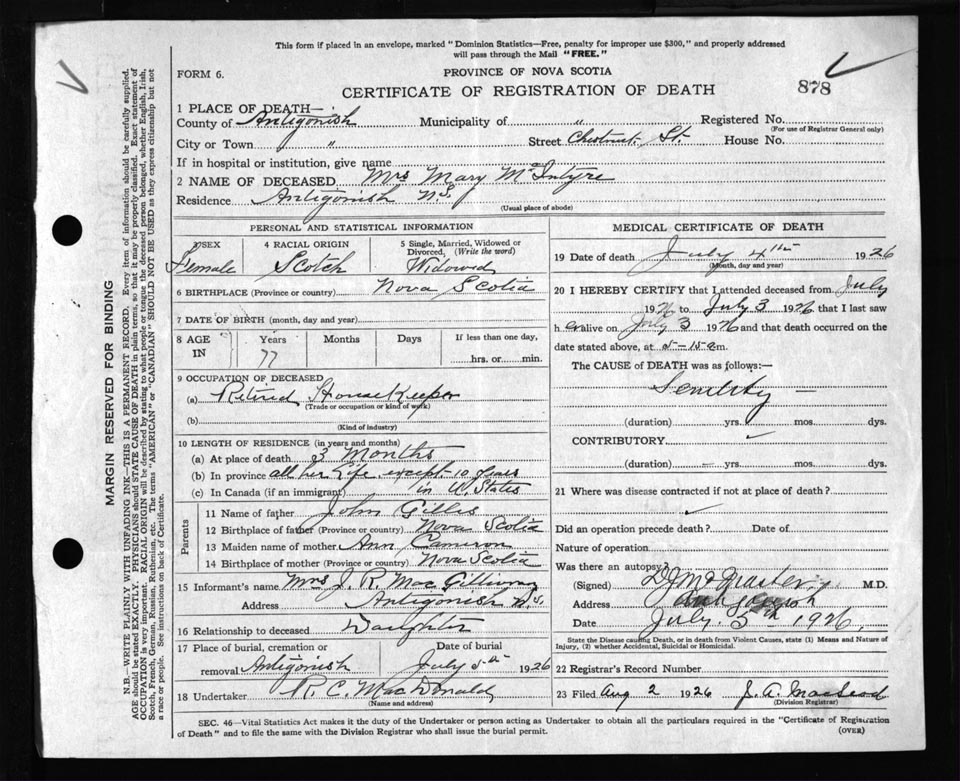 This form if placed in an envelope, marked "Dominion Statistics—Free, penalty for improper use $300," and properly addressed
will pass through the Mail "FREE."
FORM 6.
PROVINCE OF NOVA SCOTIA
CERTIFICATE OF REGISTRATION OF DEATH
878
MARGIN RESERVED FOR BINDING
N.B.—WRITE PLAINLY WITH UNFADING INK—THIS IS A PERMANENT RECORD. Every item of information should be carefully supplied.
AGE should be stated EXACTLY. PHYSICIANS should STATE CAUSE OF DEATH in plain terms, so that it may be properly classified. Exact statement of
OCCUPATION is very important. RACIAL ORIGIN will be described by stating to what people or tongue the deceased person belonged, whether English, Irish,
Scotch, French, German, Russian, Ruthenian, etc. The terms "AMERICAN" or "CANADIAN" SHOULD NOT BE USED as they express citizenship but not
a race or people. See instructions on back of Certificate.
1 PLACE OF DEATH—
County of Antigonish Municipality of " Registered No.
(For use of Registrar General only)
City or Town " Street Chestnut St. House No.
If in hospital or institution, give name
2 NAME OF DECEASED Mrs Mary McIntyre
Residence Antigonish N.S.
(Usual place of abode)
PERSONAL AND STATISTICAL INFORMATION
SEX 4 RACIAL ORIGIN 5 Single, Married, Widowed or
Divorced, (Write the word)
Female Scotch Widowed
6 BIRTHPLACE (Province or country) Nova Scotia
7 DATE OF BIRTH (month, day and year)
8 AGE IN Years Months Days If less than one day,
77 hrs. or min.
9 OCCUPATION OF DECEASED
(a) Retired House Keeper
(Trade or occupation or kind of work)
(b)
(Kind of industry)
10 LENGTH OF RESIDENCE (in years and months)
(a) At place of death 3 Months
(b) In province all her Life except 10 years
(c) In Canada (if an immigrant) in U. States
Parents
11 Name of father John Gillis
12 Birthplace of father (Province or country) Nova Scotia
13 Maiden name of mother Ann Cameron
14 Birthplace of mother (Province or country) Nova Scotia
15 Informant's name Mrs J. R. Mac Gillivray
Address Antigonish N.S.
16 Relationship to deceased Daughter
17 Place of burial, cremation or Date of burial
removal Antigonish July 5th 1926
18 Undertaker R. C. MacDonald
(Name and address)
MEDICAL CERTIFICATE OF DEATH
19 Date of death July 4th 1926
(Month, day and year)
20 I HEREBY CERTIFY that I attended deceased from July
1926 to July 3 1926 that I last saw
her alive on July 3 1926 and that death occurred on
date stated above, at 5-15 am.
The CAUSE of DEATH was as follows:—
Senility —
(duration) yrs. mos. dys.
CONTRIBUTORY
(duration) yrs. mos. dys.
21 Where was disease contracted if not at place of death?
Did an operation precede death? Date of
Nature of operation
Was there an autopsy?
(Signed) M.D.
Address Antigonish
Date July 5th 1926
State the Disease causing Death, or in death from Violent Causes, state (1) Means and Nature
of Injury, (2) whether Accidental, Suicidal or Homicidal.
22 Registrar's Record Number
23 Filed Aug 2 1926 J. A. Macleod
(Division Registrar)
SEC. 46—Vital Statistics Act makes it the duty of the Undertaker or person acting as Undertaker to obtain all the particulars required in the "Certificate of Registration
of Death" and to file the same with the Division Registrar who shall issue the burial permit.
(OVER)